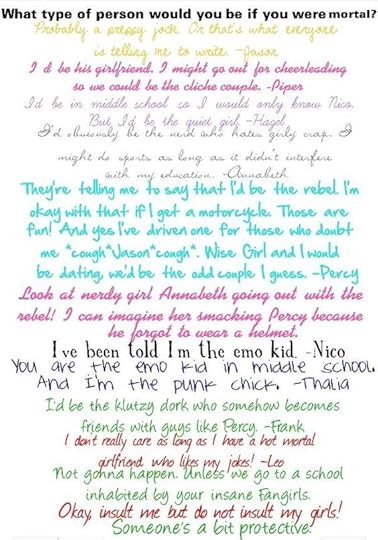 What type of person would you be if you were mortal?
Probably a preppy jock. Or that's what everyone
is telling me to write. -Jason
I'd be his girlfriend. I might go out for cheerleading
so we could be the cliche couple. -Piper
I'd be in middle school so I would only know Nico.
But, I'd be the quiet girl. -Hazel
I'd obviously be the nerd who hates girly crap. I
might do sports as long as it didn't interfere
with my education. -Annabeth
They're telling me to say that I'd be the rebel. I'm
okay with that if I get a motorcycle. Those are
fun! And yes I've driven one for those who doubt
me *cough*Jason*cough*. Wise Girl and I would
be dating, we'd be the odd couple I guess. -Percy
Look at nerdy girl Annabeth going out with the
rebel! I can imagine her smacking Percy because
he forgot to wear a helmet.
I've been told I'm the emo kid. -Nico
You are the emo kid in middle school.
And I'm the punk chick. -Thalia
I'd be the klutzy dork who somehow becomes
friends with guys like Percy. -Frank
I don't really care as long as I have a hot mortal
girlfriend who likes my jokes! -Leo
Not gonna happen. Unless we go to a school
inhabited by your insane Fangirls.
Okay, insult me but do not insult my girls!
Someone's a bit protective.